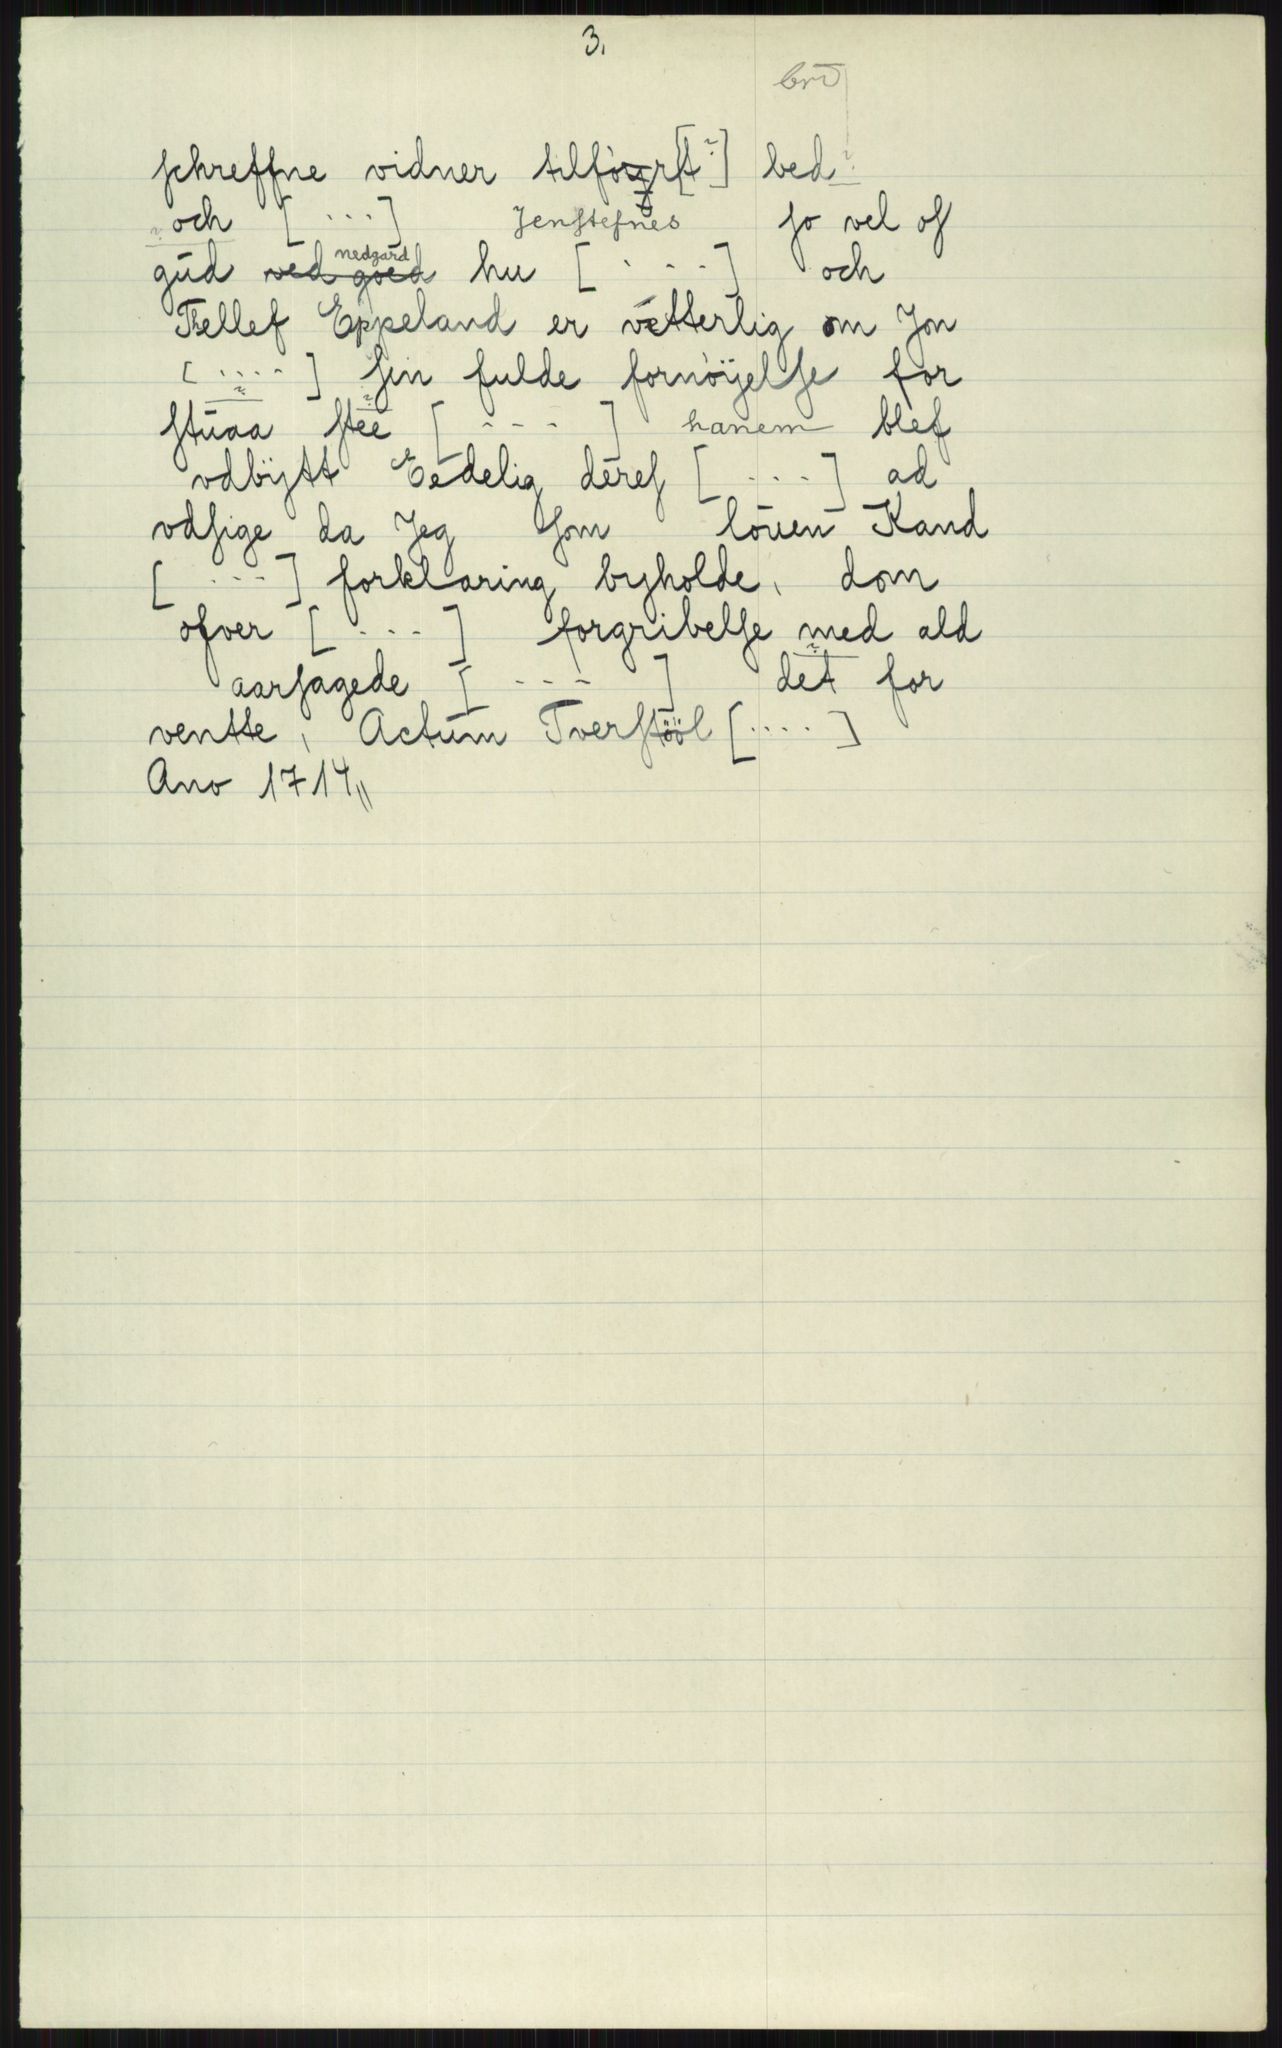 3.
schreffne vidner tilförs[t ?] bed ?
och [ ... ] Jenstefnes so vel of
gúd ved goed nedgard hu [ . - - ] och
Tellef Eppeland er vetterlig om Jon
[ .... ] sin fulde fornöÿelse for
stúaa stee [ - - - ] hanem blef
vdbÿtt Eedelig déres [ ... ] ad
vdsige da Jeg som loúen Kand
[ ... ] forklaring byholde, dom
ofver [ ... ] forgribelse med ald
aarsagede [ - - - ] det for
ventte, Actúm Tverstööl [ .... ]
Ano 1714